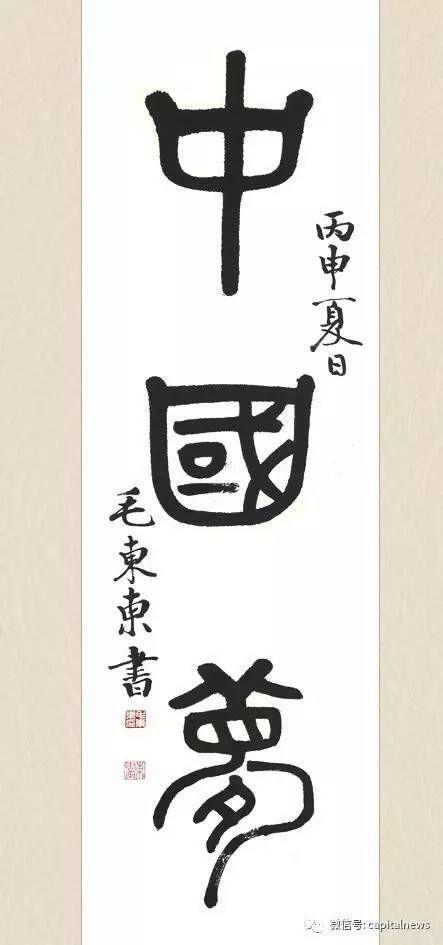 中國夢
丙申夏日
毛東東書
微信号: capitalnews